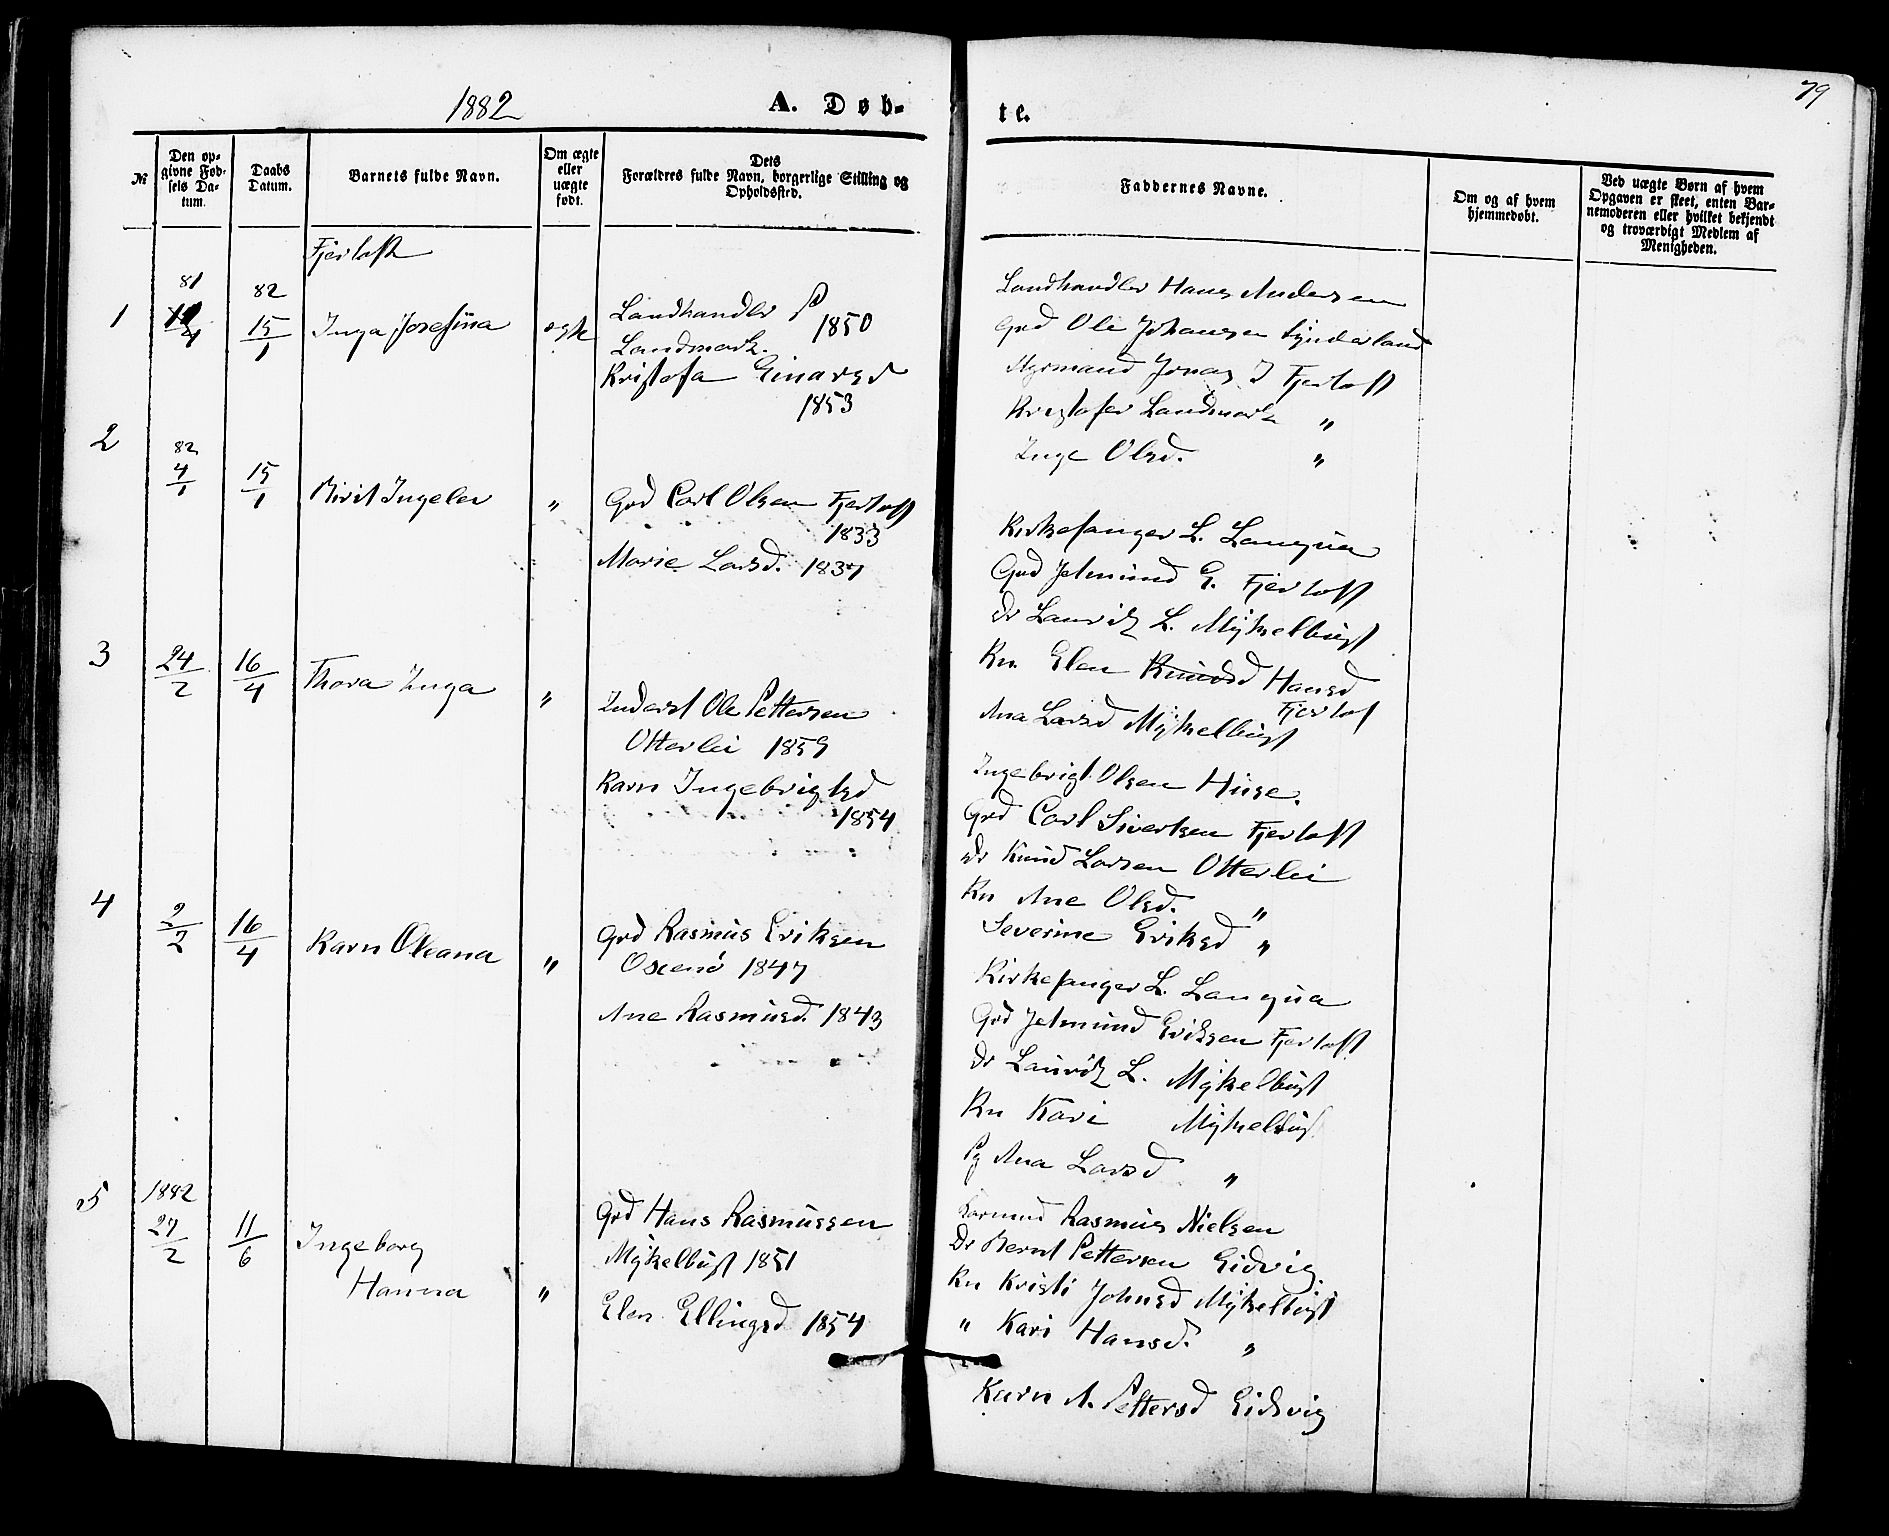 79
1882
A. Døb-
te.
№
Den op-
givne Fød-
sels Da-
tum.
Daabs
Datum.
Barnets fulde Navn.
Om ægte
eller
uægte
født.
Dets
Forældres fulde Navn, borgerlige Stilling og
Opholdssted.
Faddernes Navne.
Om og af hvem
hjemmedøbt.
Ved uægte Børn af hvem
Opgaven er skeet, enten Bar-
nemoderen eller hvilket bekjendt
og troværdigt Medlem af
Menigheden.
Fjertoft
1
81
82
15/1
Inga Josefina
ægte
Landhandler P
1850
Landmark.
Kristofa Einarsd
1853
Landhandler Hans Andersen
Grd Ole Johansen Synderland
Styrmand Jonas J Fjertoft
Kristofer Landmark "
Inge Olsd. "
2
82
4/1
15/1
Birit Ingeler
"
Grd Carl Olsen Fjertoft
1833
Marie Larsd. 1837
Kirkesanger L. Langva
Grd Jetmund E. Fjertoft
Do Lauritz L. Myklebust
Kn. Elen Knudsd Hansd
Fjertof
Ana Larsd Myklebust
3
24/2
16/4
Thora Inga
"
Inderst Ole Pettersen
Otterlei 1859
Karn Ingebrigtsd
1854
Ingebrigt Olsen Huse.
Grd Carl Sivertsen Fjertoft
Do Knud Larsen Otterlei
Kn Ane Olsd. "
Severine Eriksd "
4
2/2
16/4
Karn Oleana
"
Grd Rasmus Eriksen
Oxenø 1847
Ane Rasmusd. 1843
Kirkesanger L. Langva
Grd Jetmund Eriksen Fjertoft
Do Lauritz L. Mykelbust
Kn Kari Mykelbust
Pg Ana Larsd "
5
1882
27/2
11/6
Ingeborg
Hanna
"
Grd Hans Rasmussen
Mykelbust 1851
Elen Ellingsd 1854
Rasmus Nielsen
Do Bernt Pettersen Eidsvig
Kn Kristi Johnsd Mykelbust
" Kari Hansd. "
Karn A. Pettersd Eidsvig